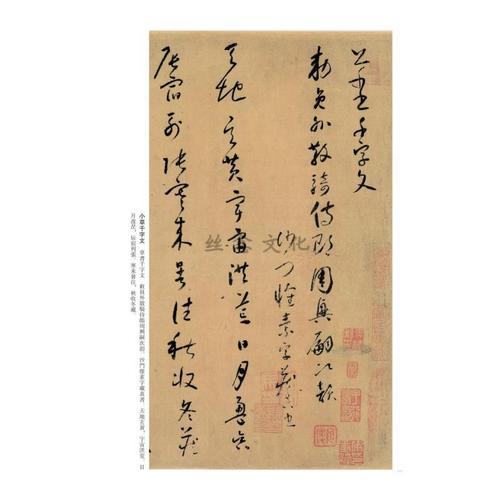 草書千字文
敕員外散騎侍郎周興嗣次韻
沙門懷素字藏真書
天地玄黃宇宙洪荒日月盈昃
辰宿列張寒來暑往秋收冬藏
小草千字文 草書千字文 敕員外散騎侍郎周興嗣次韵 沙門懷素字藏真書 天地玄黃，宇宙洪荒，日
月盈昃，辰宿列張，寒來暑往，秋收冬藏。
文化